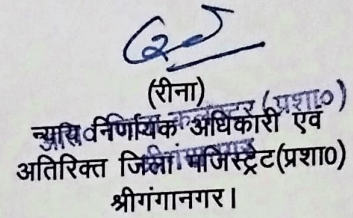 (रीना)
न्याय निर्णायक अधिकारी एवं
अतिरिक्त जिला मजिस्ट्रेट(प्रशा0)
श्रीगंगानगर।